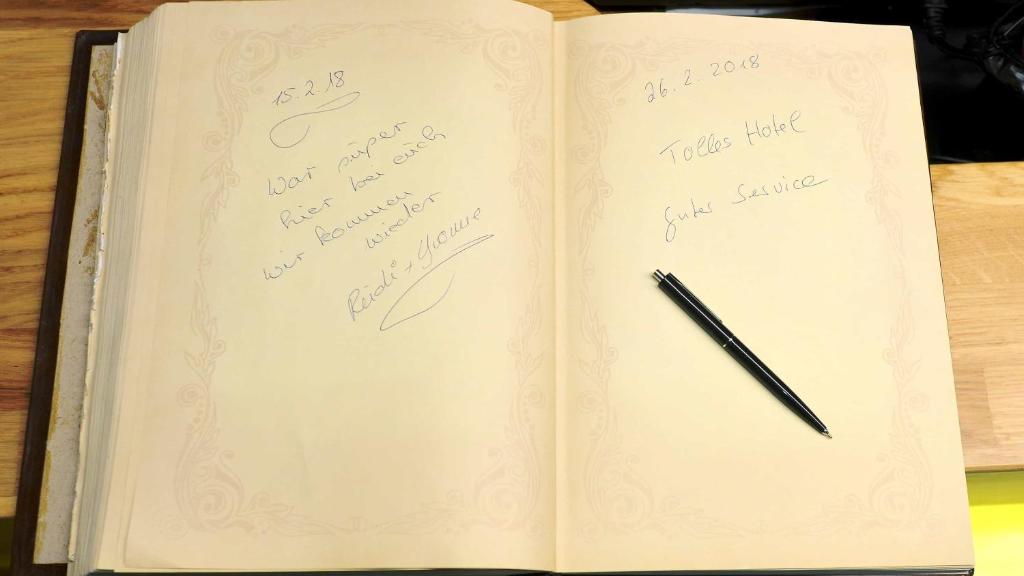 15.2.18
War super
hier bei euch
wir kommen
wieder
Heidi + Yvonne
26.2.2018
Tolles Hotel
guter Service